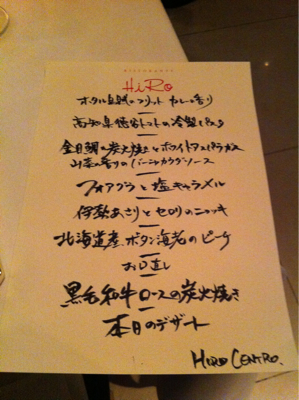 RISTORANTE
HiRo
ホタルイカのフリット カレーの香り
高知県徳谷トマトの冷製パスタ
金目鯛の炭火焼とホワイトアスパラガス
山菜の香りのバーニャカウダソース
フォアグラと塩キャラメル
伊勢あさりとセロリのニョッキ
北海道産ボタン海老のピーチ
お口直し
黒毛和牛ロースの炭火焼き
本日のデザート
HIRO CENTRO.